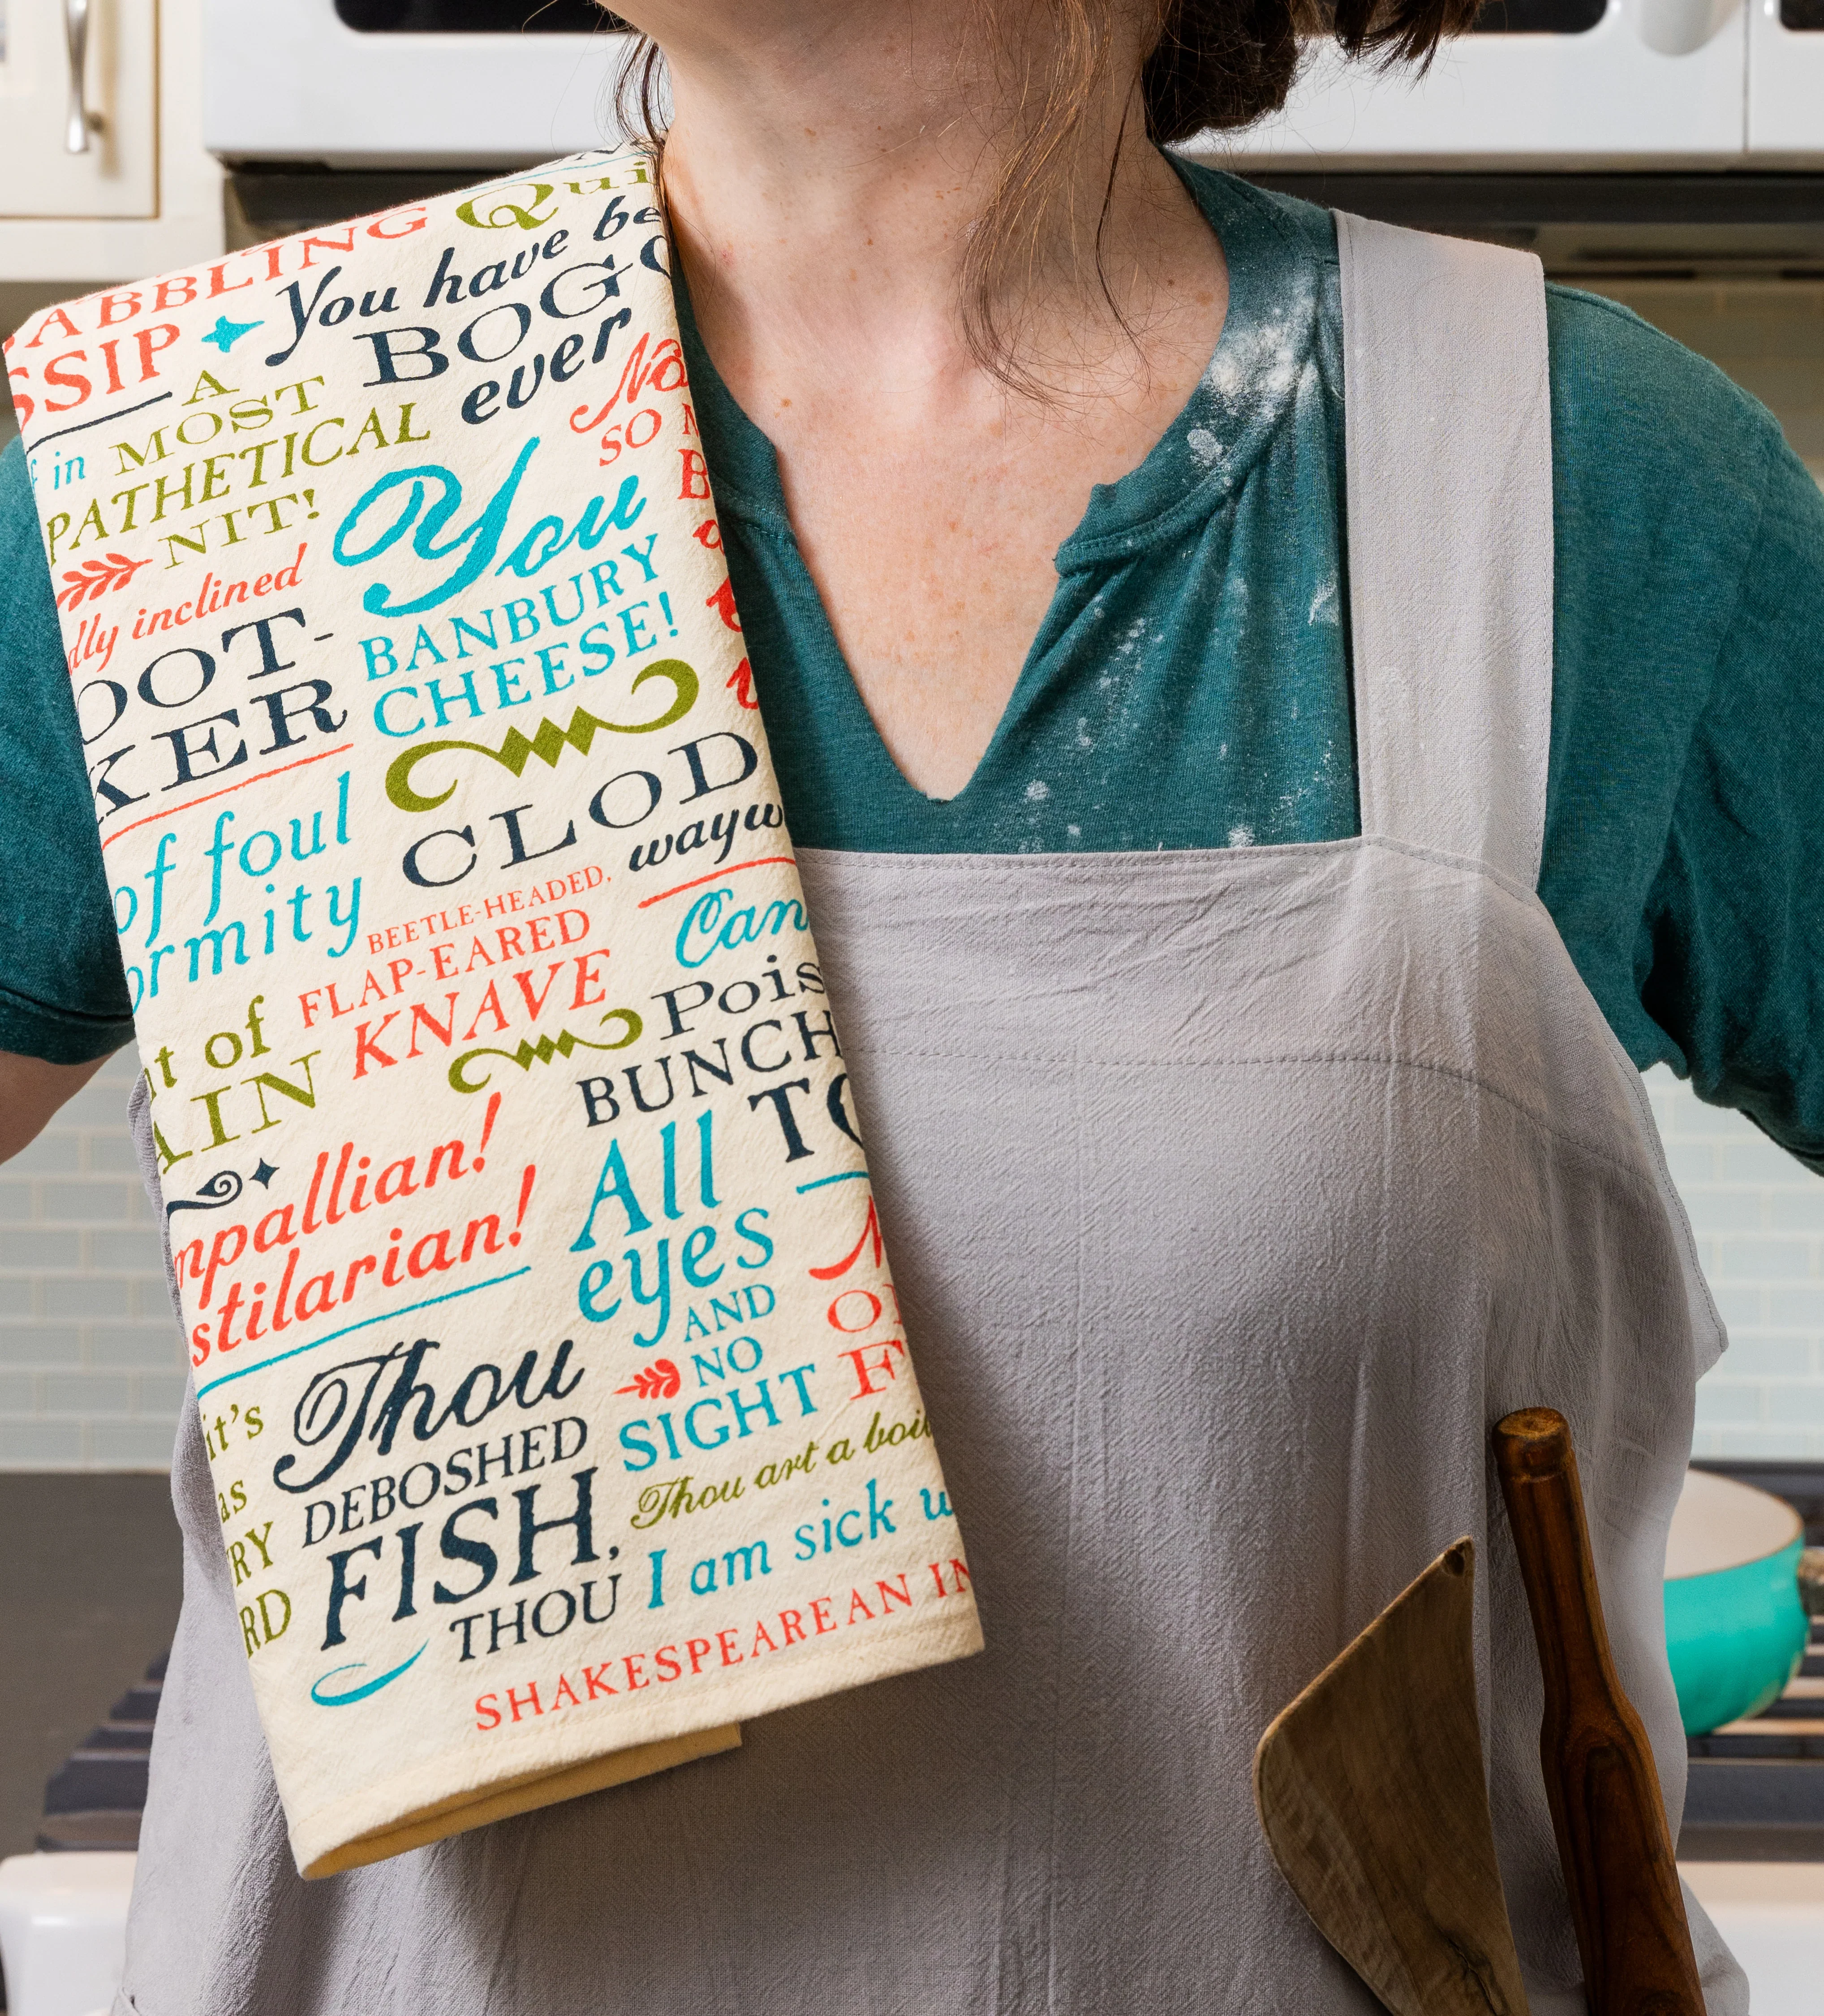 ABBLING
SSIP
Qui
You have be
BOG
ever
in
A
MOST
PATHETICAL
NIT!
SO
dly inclined
You
BANBURY
CHEESE!
OOT-
KER
CLOD
wayw
of foul
ormity
BEETLE-HEADED,
FLAP-EARED
KNAVE
Can
Pois
BUNCH
TO
t of
AIN
mpallian!
stilarian!
All
eyes
AND
NO
SIGHT
it's
as
RY
RD
Thou
DEBOSHED
FISH,
THOU
F
Thou art a boil
I am sick w
SHAKESPEAREAN IN